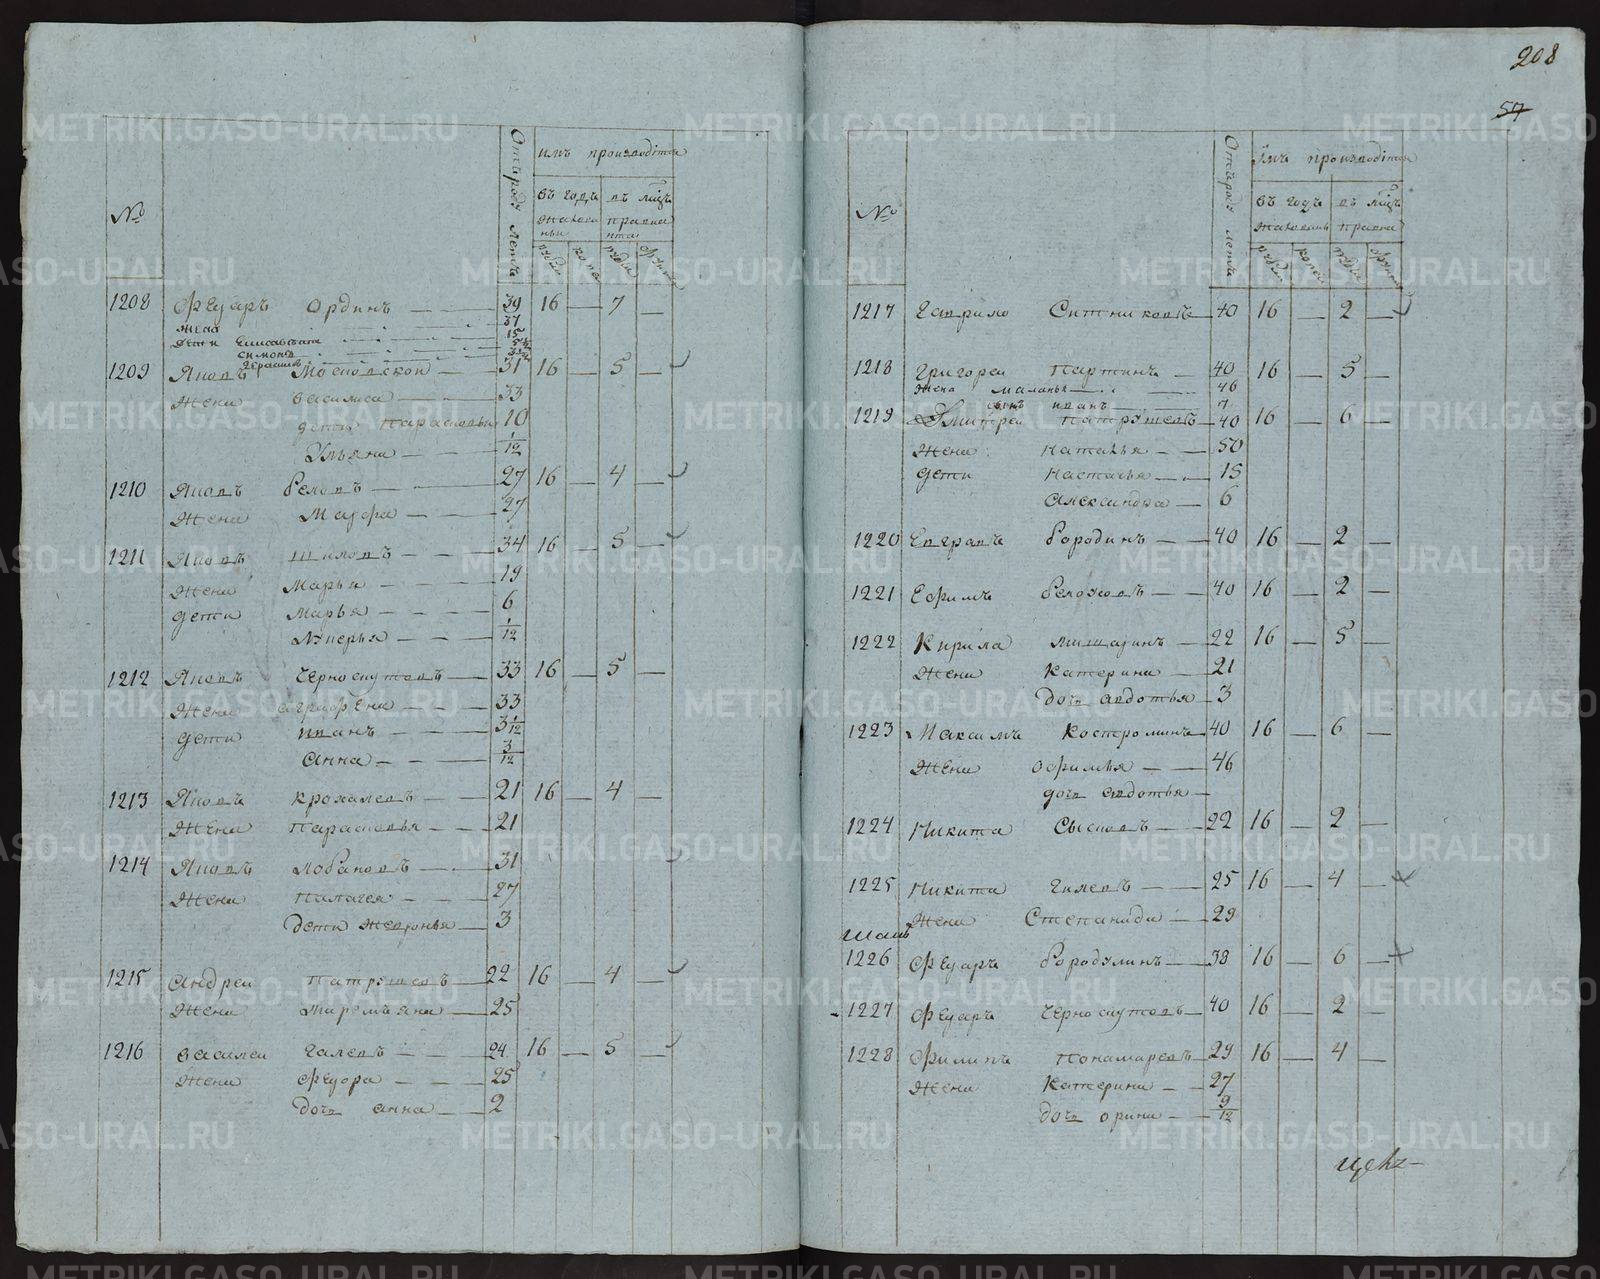 208
57
№
Отъ роду летъ
имъ производітся
въ годъ
въ мцъ
жалова
нья
правиа
нта
рубли
копе
пуды
фунт
1208 Феѳдаръ Ординъ 39 16 — 7 —
жена 37
дети Елисавета 15
Симонъ
Герасимъ
1209 Яковъ Московскои 31 16 — 5 —
жена василиса 33
дети парасковья 10
Ульяна 1/12
1210 Яковъ беловъ 27 16 — 4 —
жена Марфа 27
1211 Яковъ шиловъ 34 16 — 5 —
жена Марья 19
дети Марья 6
Лукерья 1/12
1212 Яковъ Черноскутовъ 33 16 — 5 —
жена аграфена 33
дети иванъ 3 1/12
анна 3/12
1213 Яковъ крохалевъ 21 16 — 4 —
жена парасковья 21
1214 Яковъ лобановъ 31
жена палагея 27
дети жевронья 3
1215 андреи патрушевъ 22 16 — 4 —
жена маремьяна 25
1216 василеи галевъ 24 16 — 5 —
жена Федора 25
дочь анна 2
№
Отъ роду летъ
имъ производітся
въ годъ
въ мцъ
жалованья
правиа
рубли
копеи
пуды
фунты
1217 Гаврило Ситниковъ 40 16 — 2 —
1218 Григореи партинъ 40 16 — 5 —
жена маланья 46
сынъ иванъ 7
1219 Дмитреи патрушевъ 40 16 — 6 —
жена наталья 50
дети настасья 15
александра 6
1220 Евграѳъ бородинъ 40 16 — 2 —
1221 Ефимъ белоусовъ 40 16 — 2 —
1222 Кирила мишаринъ 22 16 — 5 —
жена катерина 21
дочь авдотья 3
1223 Максимъ костроминъ 40 16 — 6 —
жена офимья 46
дочь авдотья
1224 Никита Сысковъ 22 16 — 2 —
1225 Никита гилевъ 25 16 — 4 —
жена Степанида 29
1226 Федаръ бородулинъ 38 16 — 6 —
1227 Федаръ Черноскутовъ 40 16 — 2 —
1228 Филипъ пономаревъ 29 16 — 4 —
жена катерина 27
дочь орина 9/12